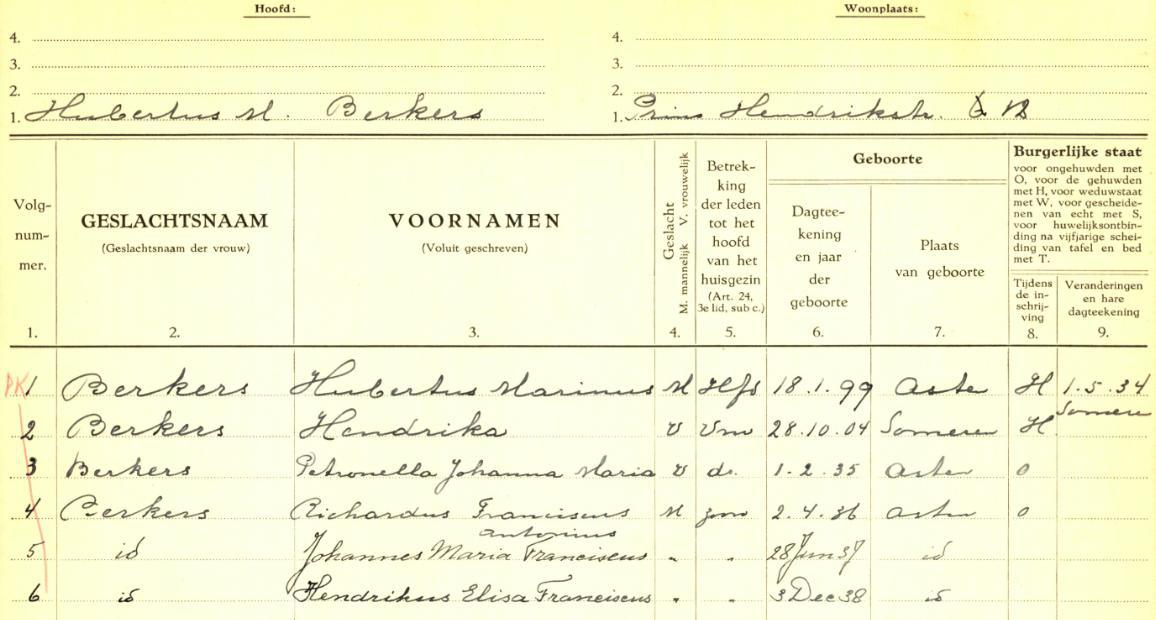 Hoofd:
Woonplaats:
4.
4.
3.
3.
2.
2.
1. Hubertus M. Berkers
1. Prins Hendrikstr.
Volg-
num-
mer.
1.
GESLACHTSNAAM
(Geslachtsnaam der vrouw)
2.
VOORNAMEN
(Voluit geschreven)
3.
Geslacht
M. mannelijk V. vrouwelijk
4.
Betrek-
king
der leden
tot het
hoofd
van het
huisgezin
(Art. 24,
3e lid, sub c.)
5.
Geboorte
Dagtee-
kening
en jaar
der
geboorte
6.
Plaats
van geboorte
7.
Burgerlijke staat
voor ongehuwden met
O, voor de gehuwden
met H, voor weduwstaat
met W, voor gescheide-
nen van echt met S,
voor huwelijksontbin-
ding na vijfjarige schei-
ding van tafel en bed
met T.
Tijdens
de in-
schrij-
ving
8.
Veranderingen
en hare
dagteekening
9.
PK 1 Berkers Hubertus Marinus M Hfs 18.1.99 Asten H 1.5.34
Someren
2 Berkers Hendrika V Vrw 28.10.04 Someren H
3 Berkers Petronella Johanna Maria V dr. 1.2.35 Asten O
4 Berkers Richardus Franciscus M zoon 2.4.36 Asten O
Antonius
5 id Johannes Maria Franciscus " " 28 Jun 37 id
6 id Hendrikus Elisa Franciscus " " 3 Dec 38 id